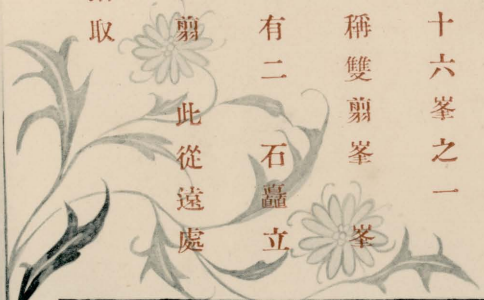 十六峯之一
稱雙翦峯 峯
有二 石矗立
翦 此從遠處
取